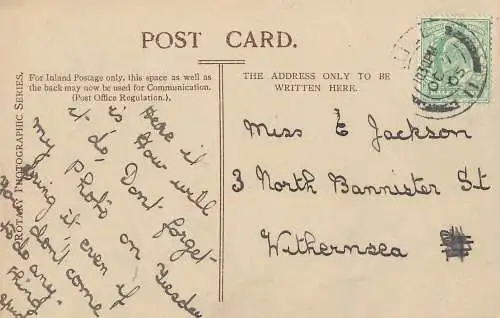 POST CARD.
ROTARY PHOTOGRAPHIC SERIES.
For Inland Postage only, this space as well as
the back may now be used for Communication.
(Post Office Regulation.)
THE ADDRESS ONLY TO BE
WRITTEN HERE.
Here it
is How will
it do. Dont forget
my Photo on Tuesday
bring it even if
you dont come
to do any
thing
Miss E Jackson
3 North Bannister St
Withernsea